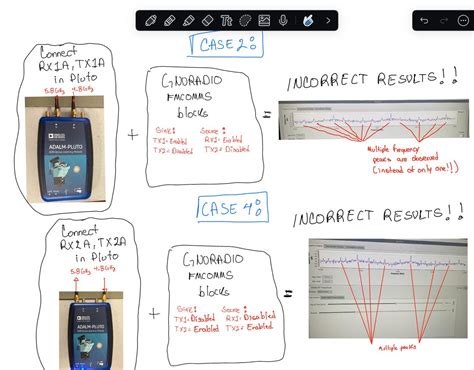 CASE 2:
Connect
RX1A, TX1A
in Pluto
5.8GHz 4.8GHz
ANALOG DEVICES
ADALM-PLUTO
+
GNURADIO
FMCOMMS
blocks
Sink: Source:
TX1=Enabled RX1=Enabled
TX2=Disabled
=
INCORRECT RESULTS!!
Multiple frequency
peaks are observed
(instead of only one!!)
CASE 4:
Connect
RX2A, TX2A
in Pluto
5.8GHz 4.8GHz
ANALOG DEVICES
ADALM-PLUTO
+
GNURADIO
FMCOMMS
blocks
Sink: Source:
TX1=Disabled RX1=Disabled
=
INCORRECT RESULTS!!
Multiple peaks